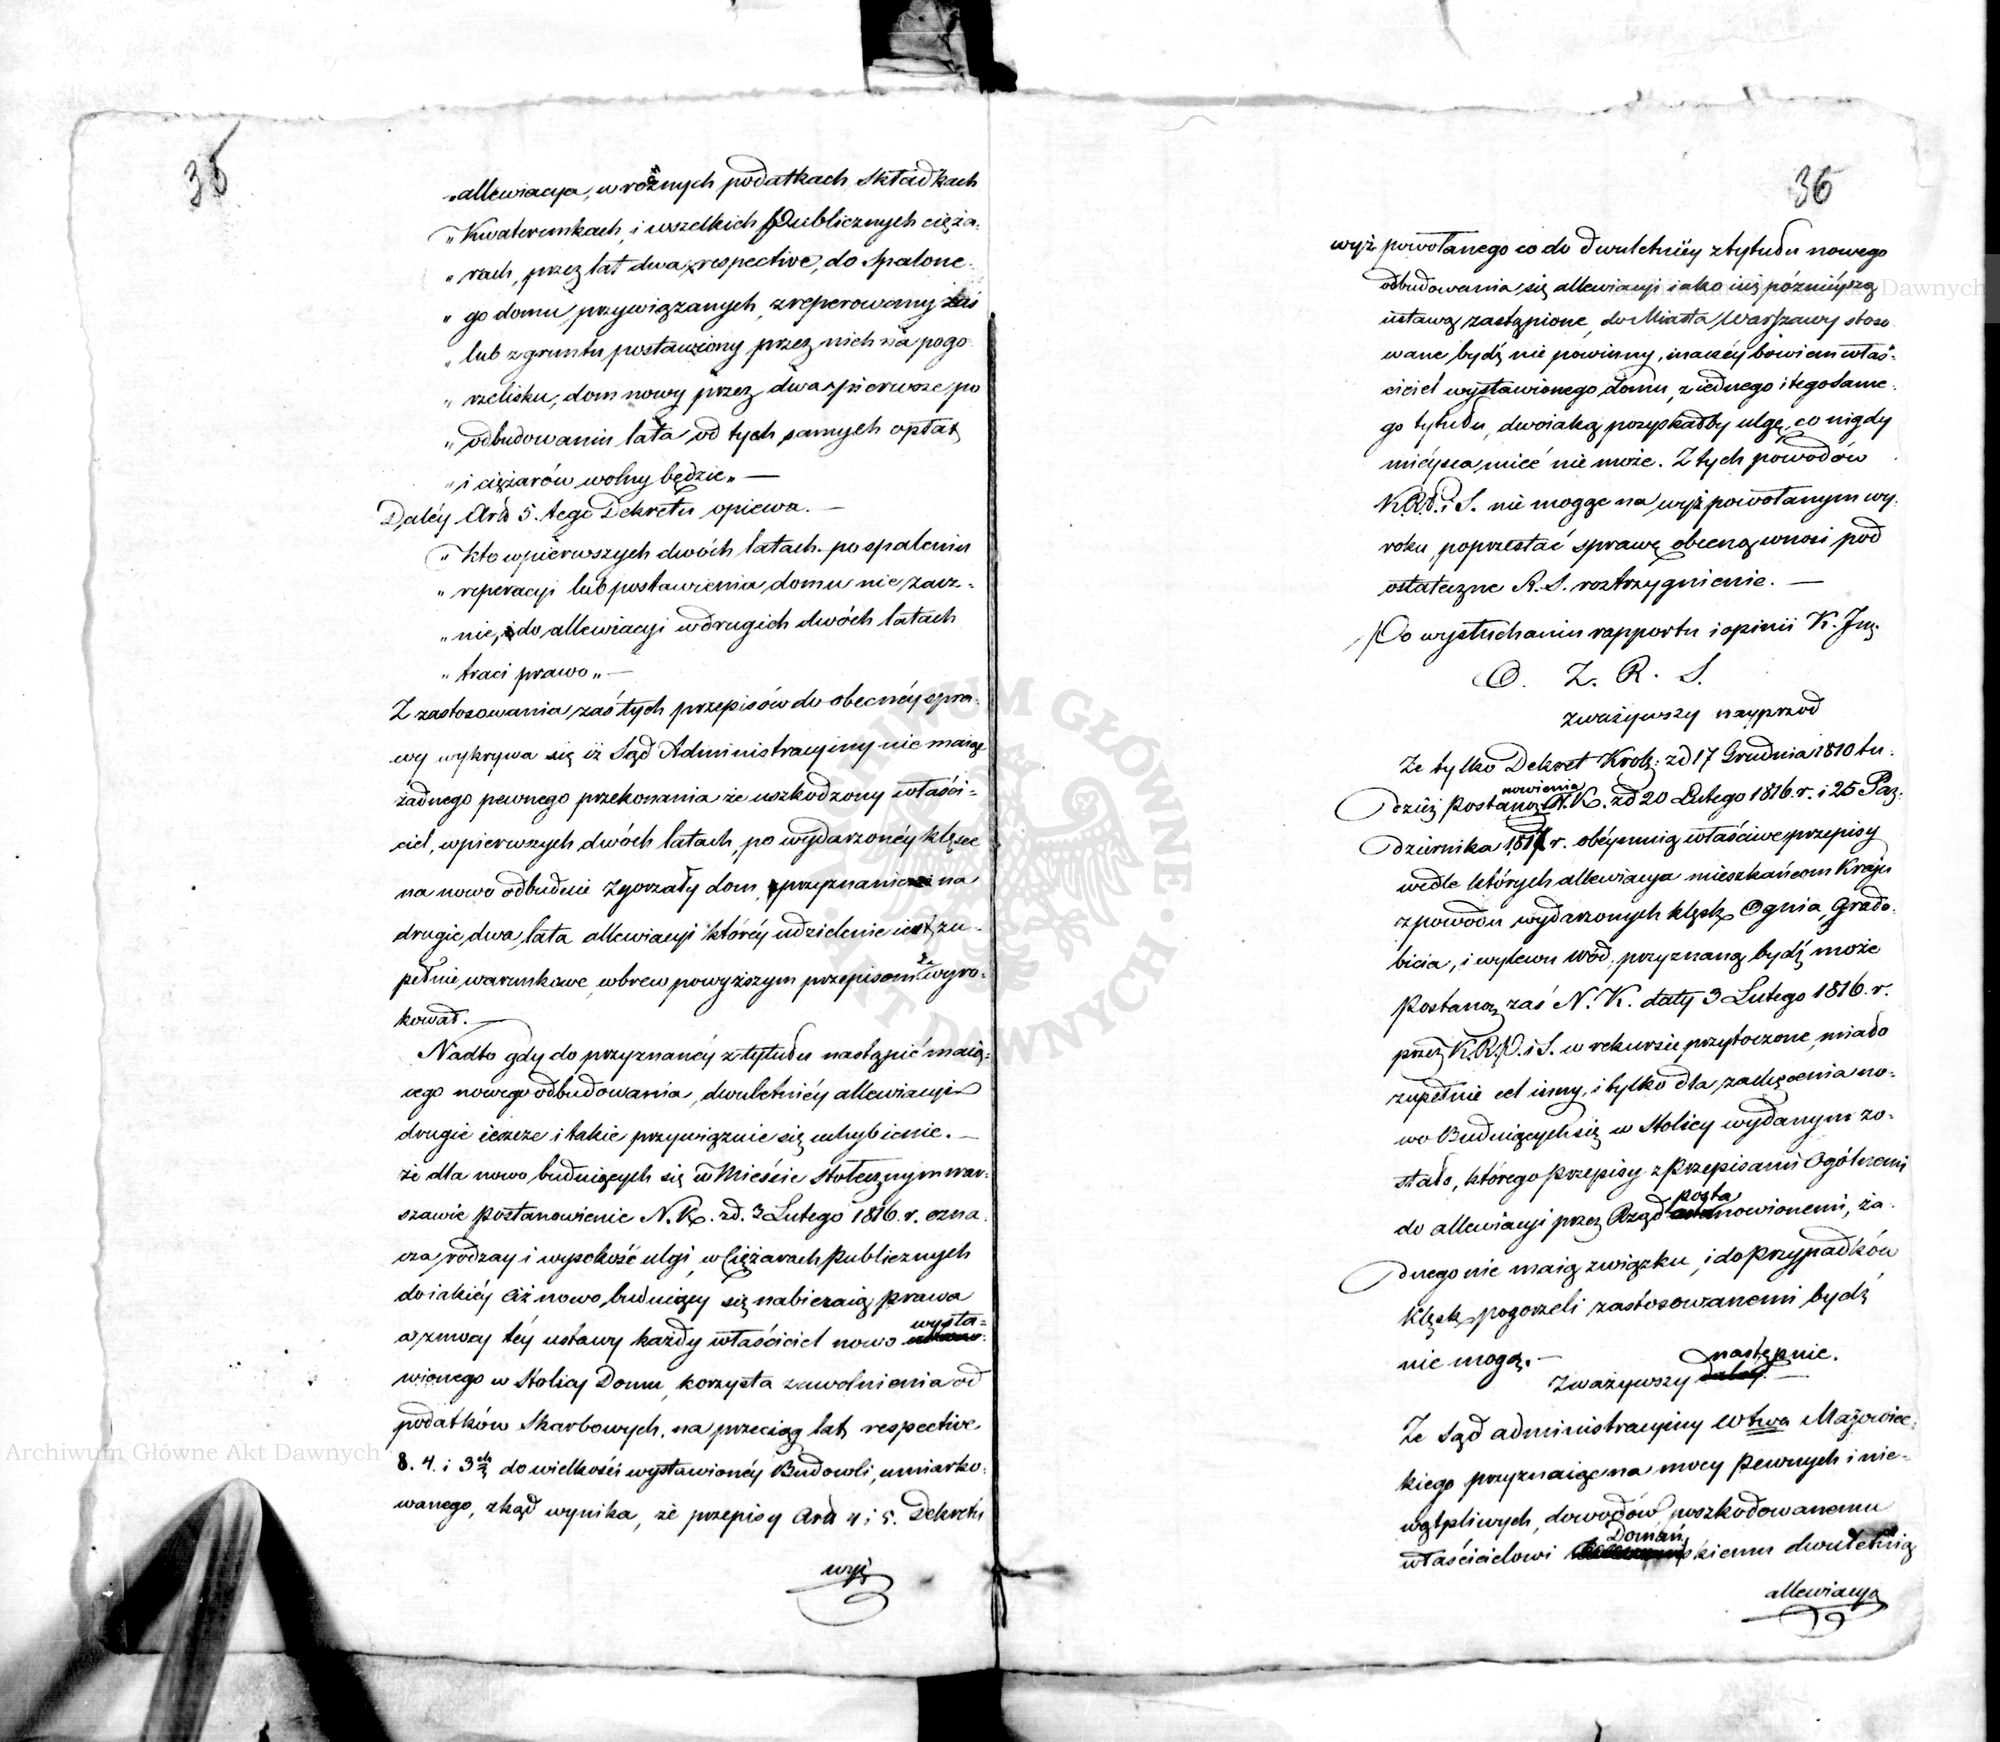 35
„allewiacya, w rożnych podatkach składkach
„Kwaterunkach, i wszelkich Publicznych cięża-
„rach, przez lat dwa, respective, do spalone-
„go domu przywiązanych, zreperowany zaś
„lub z gruntu postawiony przez nich na pogo-
„rzelisku, dom nowy przez dwa pierwsze po
„odbudowaniu lata, od tych samych opłat
„i ciężarów wolny będzie„ —
Daléy Art 5. tego Dekretu opiewa. —
„Kto w pierwszych dwóch latach po spaleniu
„reperacyi lub postawienia domu nie zacz-
„nie, do allewiacyi w drugich dwóch latach
„traci prawo„ —
Z zastosowania zaś tych przepisów do obecnéy spra-
wy wykrywa się iż Sąd Administracyiny nie maiąc
żadnego pewnego przekonania że uszkodzony właści-
ciel, w pierwszych dwóch latach, po wydarzonéy klęsce
na nowo odbuduie zgorzały dom, przyznanie na
drugie dwa lata allewiacyi któréy udzielenie iest zu-
pełnie warunkowe, wbrew powyższym przepisom za wyro-
kował. —
Nadto gdy do przyznanéy z tytułu nastąpić maią-
cego nowego odbudowania, dwuletniéy allewiacyi
drugie ieszcze i takie przywiązuie się uchybienie. —
że dla nowo buduiących się w Mieście Stołecznym War-
szawie postanowienie N. K. zd. 3 Lutego 1816. r. ozna-
cza rodzay i wysokość ulgi, w Ciężarach publicznych
do iakiéy ciż nowo buduiący się nabieraią prawa
a z mocy téy ustawy każdy właściciel nowo wysta-
wionego w Stolicy Domu, korzysta z uwolnienia od
podatków Skarbowych, na przeciąg lat respective
8. 4. i 3ch do wielkości wystawionéy Budowli, umiarko-
wanego, zkąd wynika, że przepisy Art 4 i 5. Dekretu
wyż
36
wyż powołanego co do dwuletniéy z tytułu nowego
odbudowania się allewiacyi iako iuż póznieyszą
ustawą zastąpione, do Miasta Warszawy stoso-
wane bydź nie powinny, inaczéy bowiem właś-
ciciel wystawionego domu, z iednego i tego same-
go tytułu, dwoiaką pozyskałby ulgę, co nigdy
mieysca mieć nie może. Z tych powodów
K. R. P. i S. nie mogąc na wyż powołanym wy-
roku, poprzestać sprawę obecną wnosi pod
ostateczne R. S. roztrzygnienie. —
Po wysłuchaniu rapportu i opinii K. Inż.
O. Z. R. S.
zważywszy nayprzod
Że tylko Dekret Krolz: zd 17 Grudnia 1810 tu-
dzież postanowienia N. K. zd 20 Lutego 1816. r. i 25 Paź-
dziernika 1817 r. obéymuią właściwe przepisy
wedle których allewiacya mieszkańcom Kraju
z powodu wydarzonych klęsk Ognia, Grado-
bicia, i wylewu wód, przyznaną bydź może
Postanoz zaś N. K. daty 3 Lutego 1816. r.
przez K. R. P. i S. w rekursie przytoczone, miało
zupełnie cel inny, i tylko dla zachęcenia no-
wo Buduiących się w Stolicy wydanym zo-
stało, którego przepisy z przepisami Ogólnemi
do allewiacyi przez Rząd postanowionemi, ża-
dnego nie maią związku, i do przypadków
Klęsk pogorzeli zastosowanemi bydź
nie mogą. —
Zważywszy następnie. —
Że Sąd administracyiny Wtwa Mazowiec-
kiego przyznaiąc na mocy pewnych i nie-
wątpliwych, dowodów, poszkodowanemu
właścicielowi Domańskiemu dwuletnią
allewiacyą
ARCHIWUM GŁÓWNE AKT DAWNYCH
Archiwum Główne Akt Dawnych